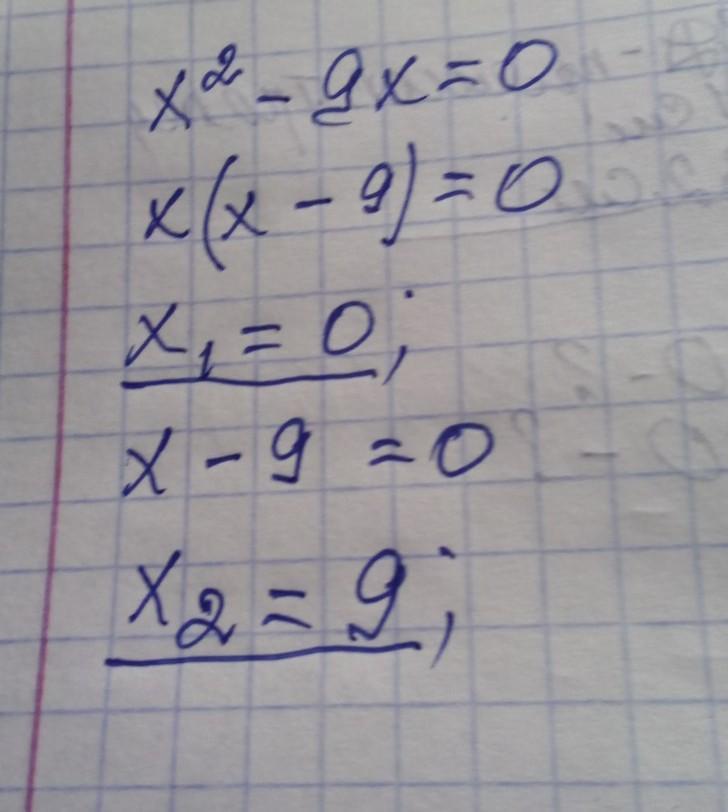 x² - 9x = 0
x(x - 9) = 0
x₁ = 0;
x - 9 = 0
x₂ = 9;